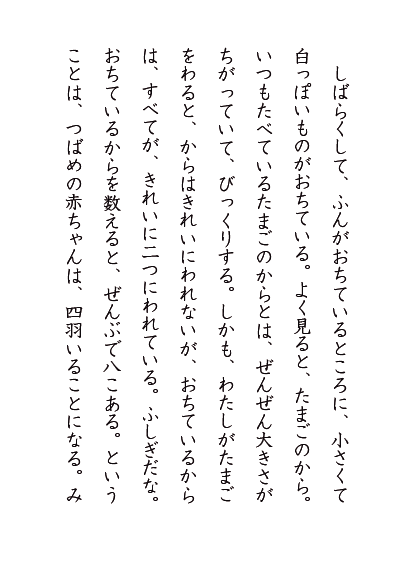 しばらくして、ふんがおちているところに、小さくて
白っぽいものがおちている。よく見ると、たまごのから。
いつもたべているたまごのからとは、ぜんぜん大きさが
ちがっていて、びっくりする。しかも、わたしがたまご
をわると、からはきれいにわれないが、おちているから
は、すべてが、きれいに二つにわれている。ふしぎだな。
おちているからを数えると、ぜんぶで八こある。という
ことは、つばめの赤ちゃんは、四羽いることになる。み